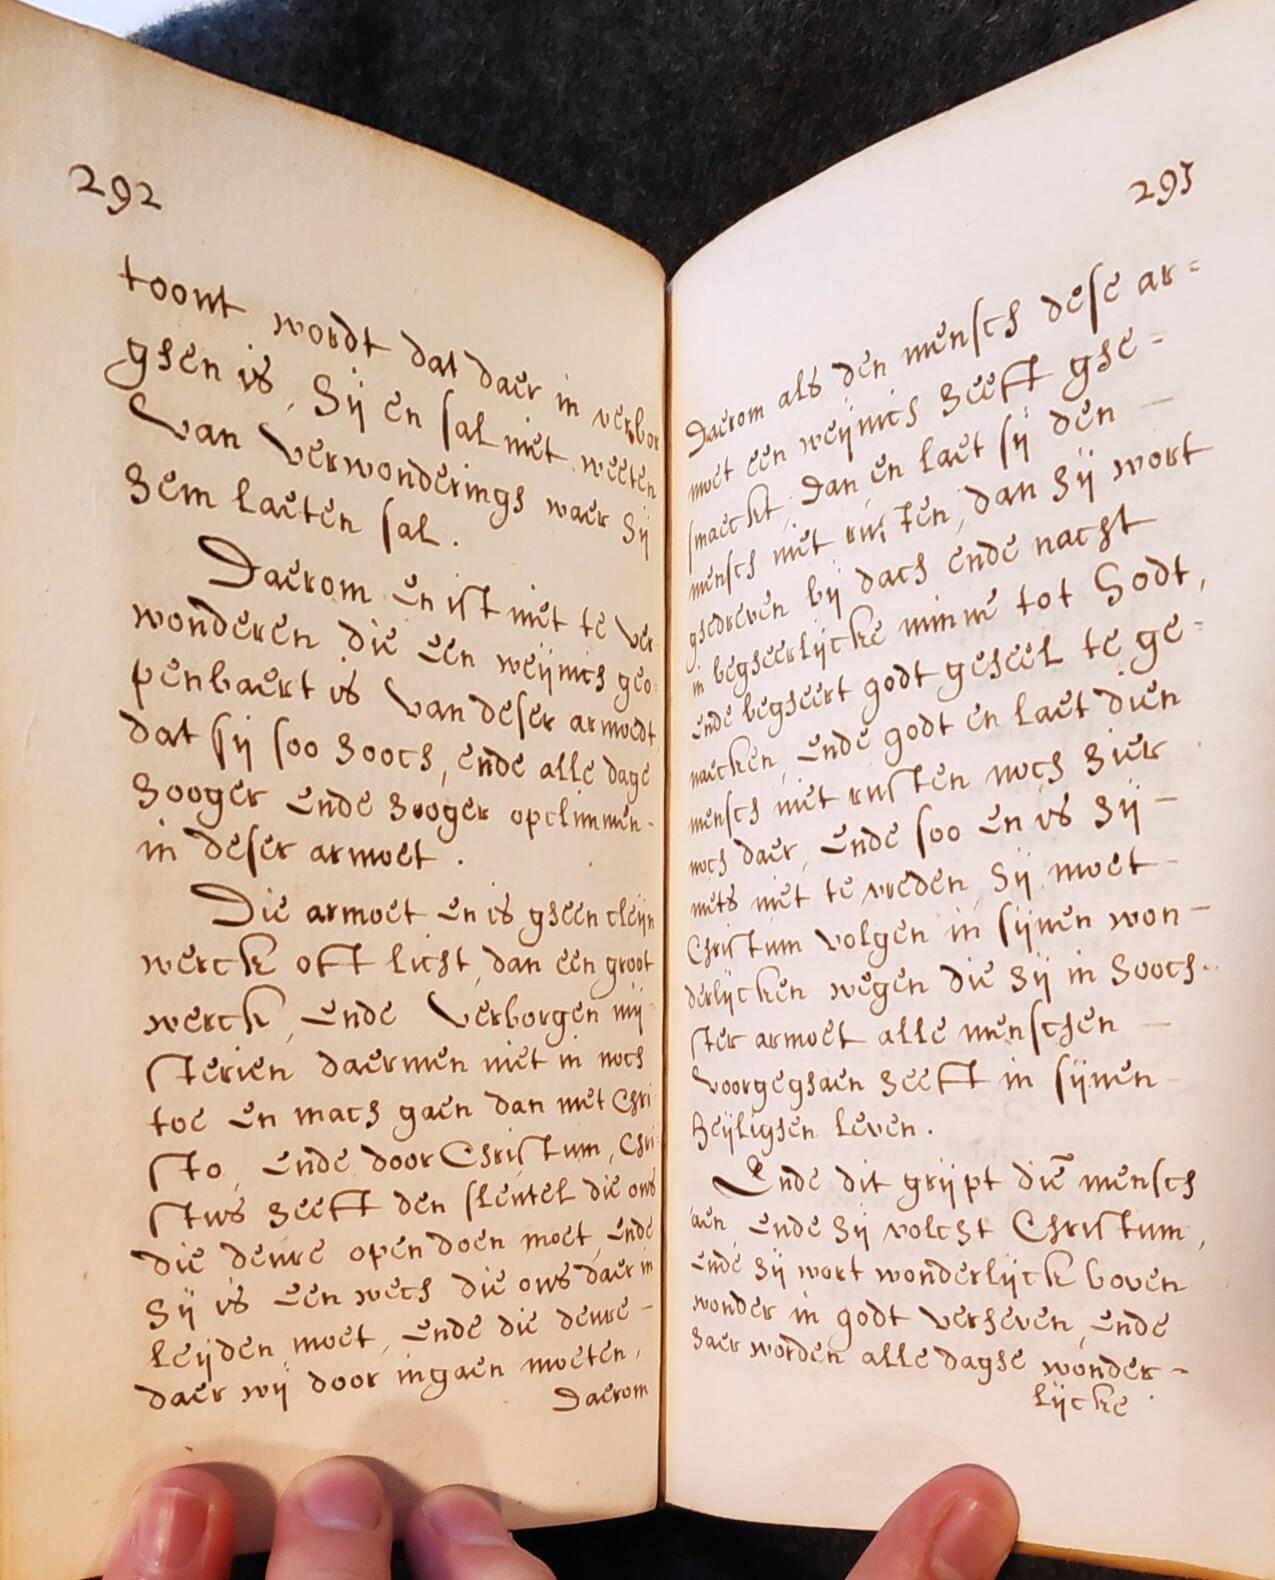 292
toont wordt dat daer in verbor
ghen is, hij en sal niet weeten
van verwonderingh waer hij
hem laeten sal.
Daerom en ist niet te ver
wonderen die een weijnich geo
penbaert is van deser armoedt,
dat sij soo hooch, ende alle dage
hooger ende hooger opclimmen
in deser armoet.
Die armoet en is gheen cleijn
werck oft licht, dan een groot
werck, ende verborgen mij
sterien daermen niet in noch
toe en mach gaen dan met Chri
sto, ende door Christum, Chri
stus heeft den sleutel die ons
die deure open doen moet, ende
hij is een wech die ons daer in
leijden moet, ende die deure -
daer wij door ingaen moeten,
Daerom
293
Daerom als den mensch dese ar=
moet een weijnich heeft ghe=
smaeckt, Dan en laet sij den -
mensch niet rusten, dan hij wort
ghedreven bij dach ende nacht
in begheerlijcke minne tot Godt,
ende begheert godt geheel te ge=
naecken, ende godt en laet dien
mensch niet rusten noch hier
noch daer, ende soo en is hij -
niets niet te vreden, hij moet -
Christum volgen in sijnen won-
derlijcken wegen die hij in hooch-
ster armoet alle menschen -
voorgeghaen heeft in sijnen -
heijlighen leven.
Ende dit grijpt die mensch
aen, ende hij volcht Christum,
ende hij wort wonderlijck boven
wonder in godt verheven, ende
haer worden alle daghe wonder-
lijcke